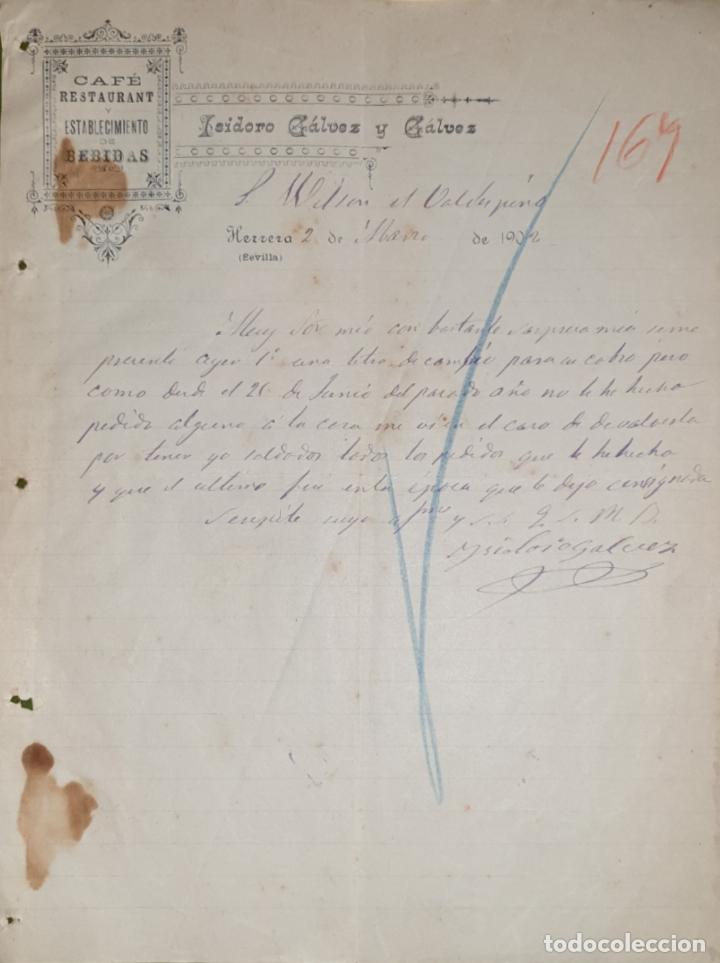 CAFÉ
RESTAURANT
Y
ESTABLECIMIENTO
DE
BEBIDAS
Isidoro Gálvez y Gálvez
167
S. Wilson et Valdespino
Herrera 2 de Marzo de 1902
(Sevilla)
Muy Sor mio con bastante surpresa mia se me
presentó ayer 1º una letra de cambio para su cobro pero
como desde el 26 de Junio del pasado año no le he hecho
pedido alguno á la casa me vi en el caso de devolverla
por tener yo saldados todos los pedidos que le he hecho
y que el ultimo fué en la época que le dejo consignada
Se repite suyo afmo y s. s. q. s. M. B.
Ysidoro Galvez
todocoleccion
todocoleccion.net